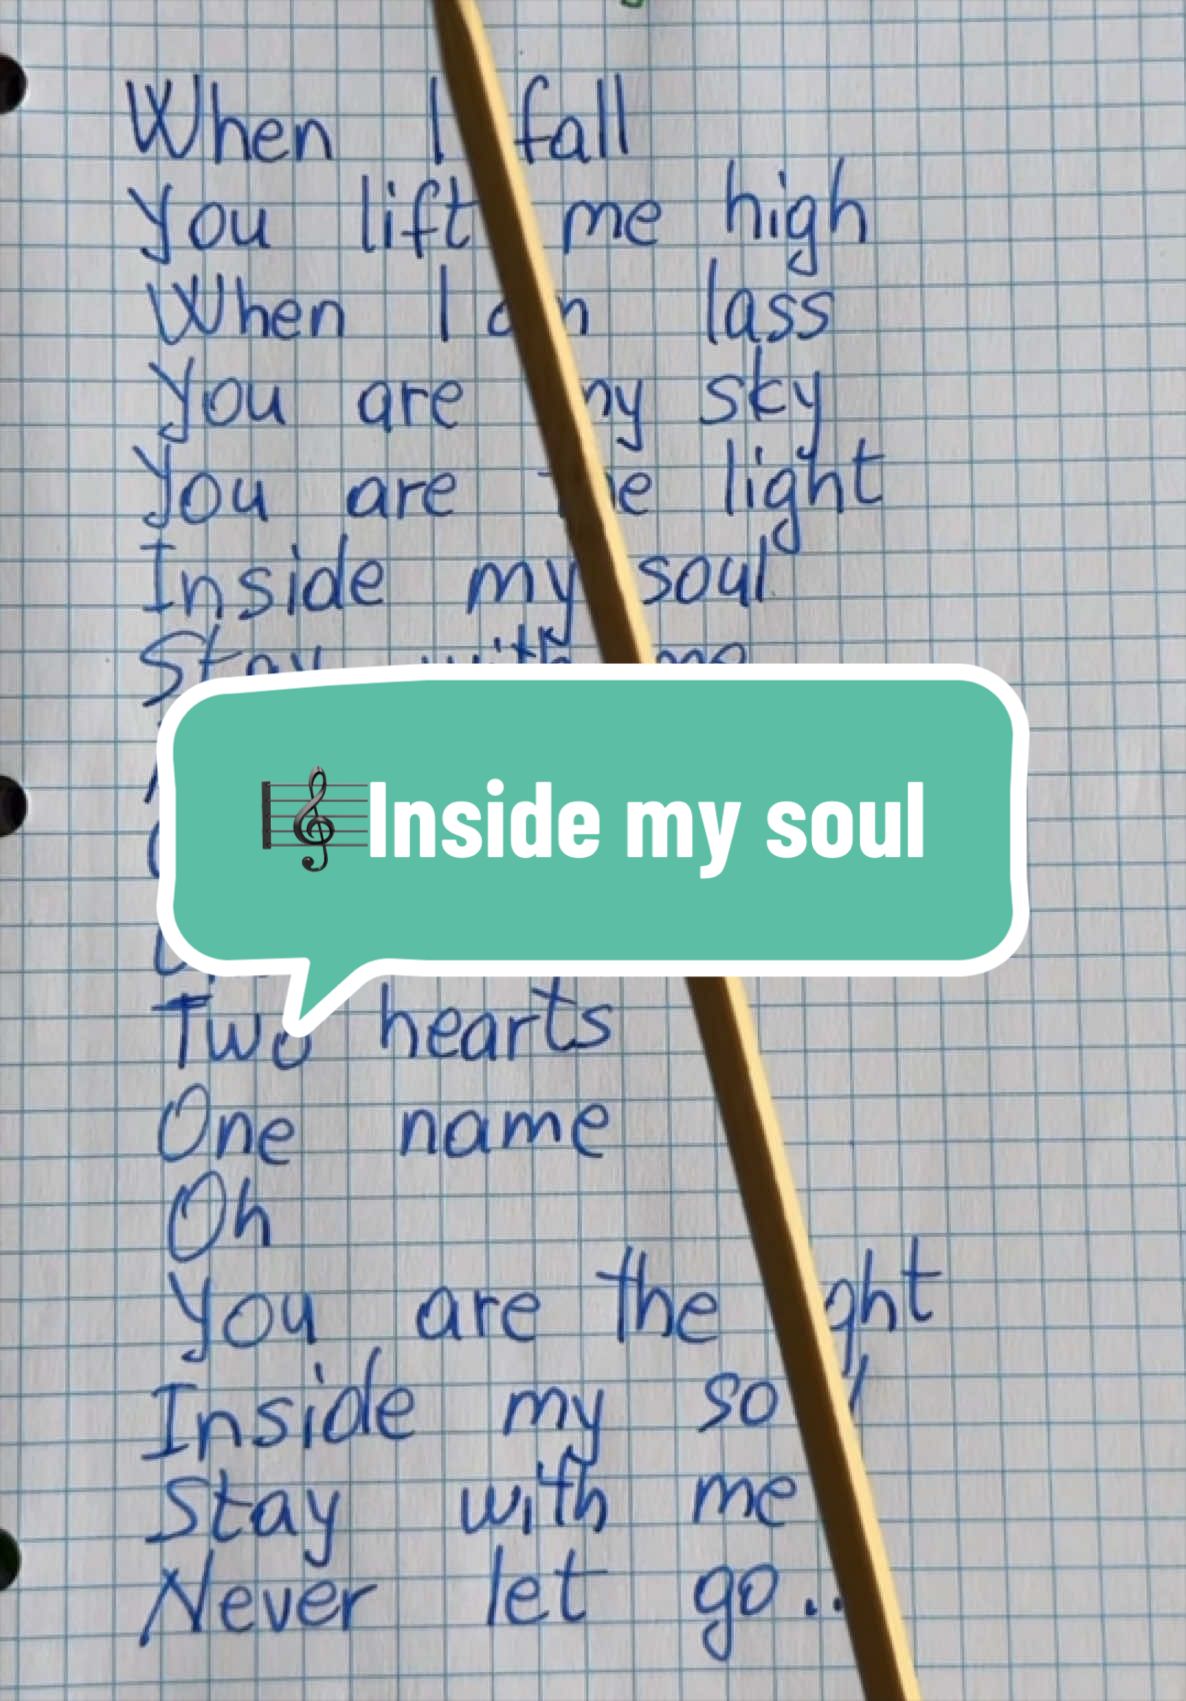 When I fall
You lift me high
When I lass
You are my sky
You are the light
Inside my soul
Stay with me
🎼Inside my soul
Two hearts
One name
Oh
You are the
Inside my
Stay with me
Never let go..